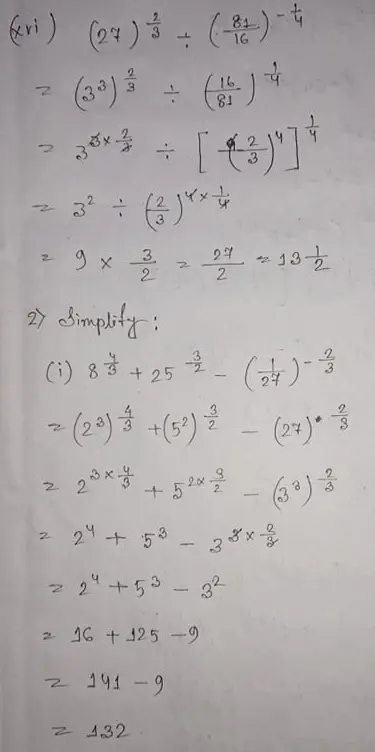 (xvi) (27)^(2/3) ÷ (81/16)^(-1/4)
= (3³)^(2/3) ÷ (16/81)^(1/4)
= 3^(3×2/3) ÷ [(2/3)⁴]^(1/4)
= 3² ÷ (2/3)^(4×1/4)
= 9 × 3/2 = 27/2 = 13 1/2
2) Simplify:
(i) 8^(4/3) + 25^(3/2) - (1/27)^(-2/3)
= (2³)^(4/3) + (5²)^(3/2) - (27)^(2/3)
= 2^(3×4/3) + 5^(2×3/2) - (3³)^(2/3)
= 2⁴ + 5³ - 3^(3×2/3)
= 2⁴ + 5³ - 3²
= 16 + 125 - 9
= 141 - 9
= 132